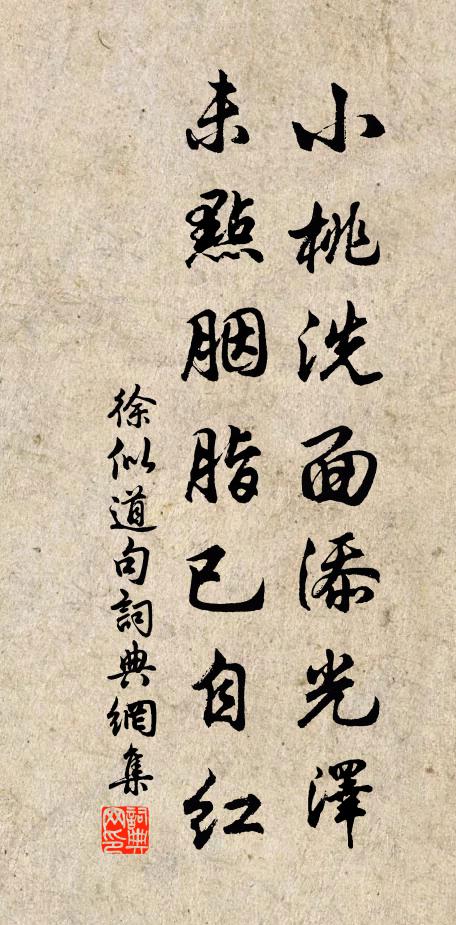 小桃洗面添光澤
未點胭脂已自紅
徐似道句詞典網集
詞典网印